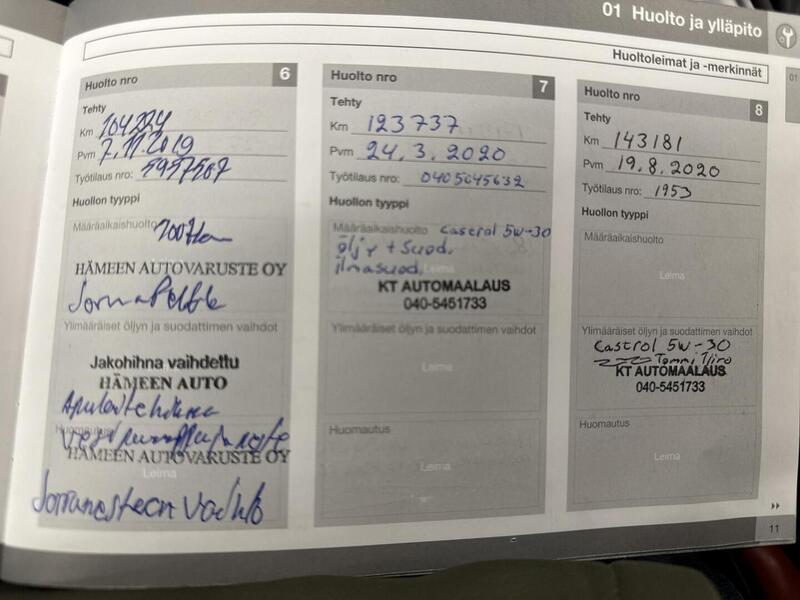 01 Huolto ja ylläpito
Huoltoleimat ja -merkinnät
01
Huolto nro 6
Tehty
Km 104224
Pvm 7.11.2019
Työtilaus nro: 5957507
Huollon tyyppi
Määräaikaishuolto
HÄMEEN AUTOVARUSTE OY
Ylimääräiset öljyn ja suodattimen vaihdot
Jakohihna vaihdettu
HÄMEEN AUTO
Apulaitehihna
HÄMEEN AUTOVARUSTE OY
Leima
Jarrunesteen vaihto
Huolto nro 7
Tehty
Km 123737
Pvm 24.3.2020
Työtilaus nro: 0405045632
Huollon tyyppi
Määräaikaishuolto Castrol 5w-30
öljy + suod.
ilmasuod. Leima
KT AUTOMAALAUS
040-5451733
Ylimääräiset öljyn ja suodattimen vaihdot
Leima
Huomautus
Leima
Huolto nro 8
Tehty
Km 143181
Pvm 19.8.2020
Työtilaus nro: 1953
Huollon tyyppi
Määräaikaishuolto
Leima
Ylimääräiset öljyn ja suodattimen vaihdot
Castrol 5w-30
Tommi
KT AUTOMAALAUS
040-5451733
Huomautus
Leima
11